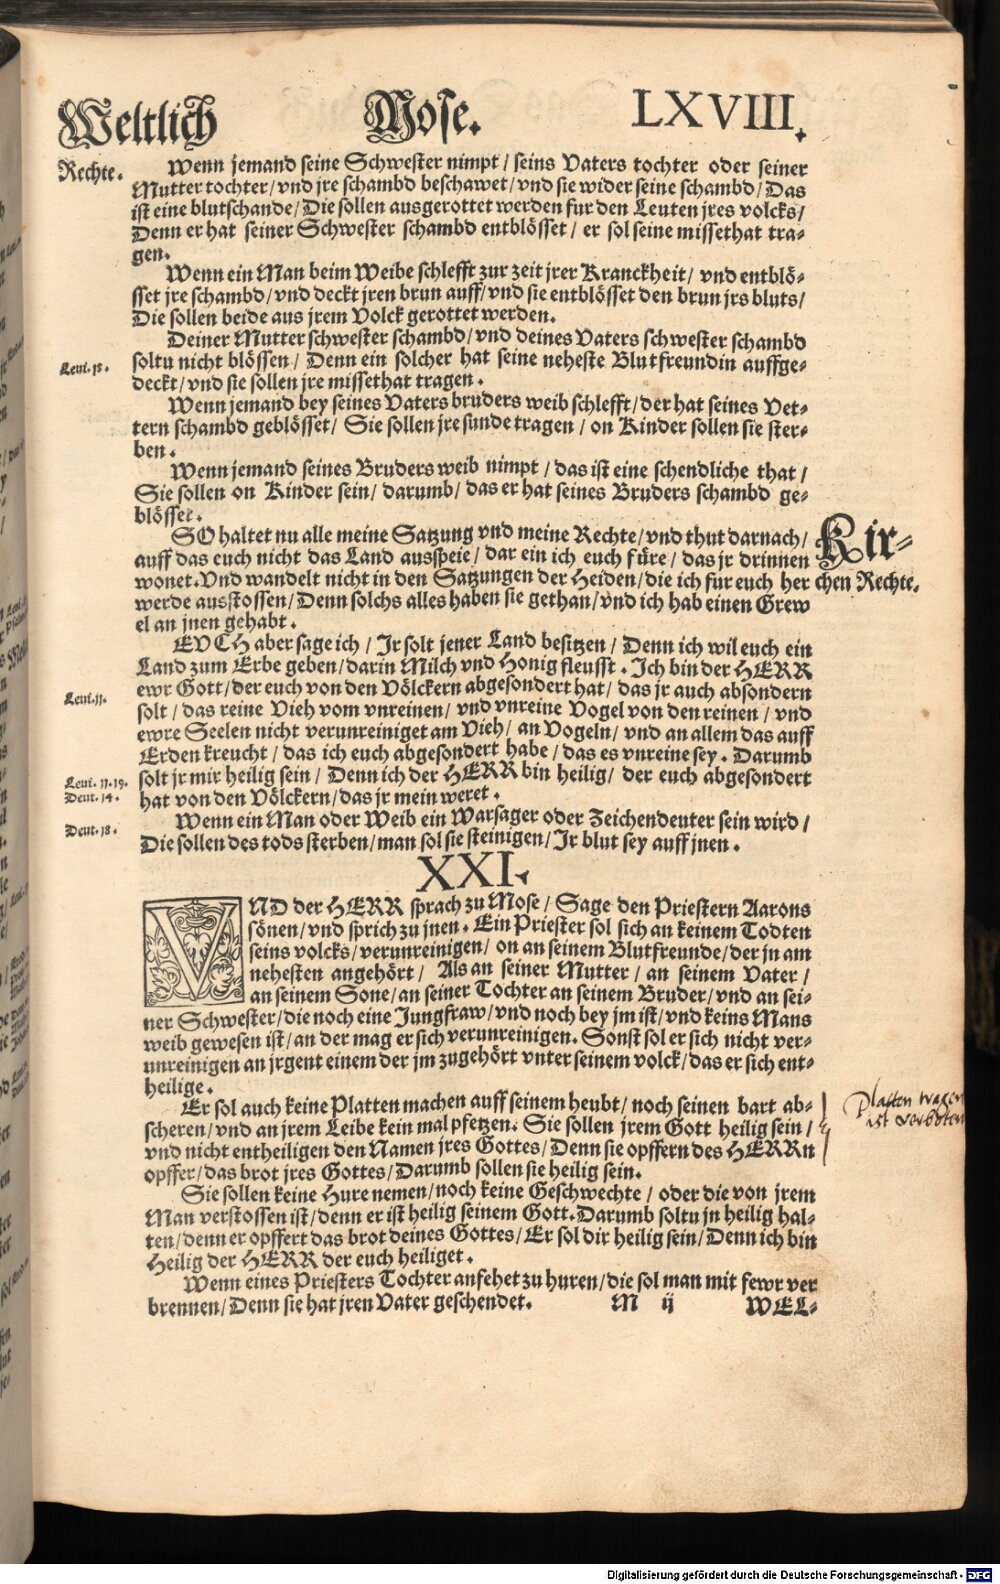 Weltlich Mose. LXVIII.
Rechte.
Wenn jemand seine Schwester nimpt / seins Vaters tochter oder seiner
Mutter tochter / vnd jre schambd beschawet / vnd sie wider seine schambd / Das
ist eine blutschande / Die sollen ausgerottet werden fur den Leuten jres volcks /
Denn er hat seiner Schwester schambd entblösset / er sol seine missethat tra-
gen.
Wenn ein Man beim Weibe schlefft zur zeit jrer Kranckheit / vnd entblö-
sset jre schambd / vnd deckt jren brun auff / vnd sie entblösset den brun jrs bluts /
Die sollen beide aus jrem Volck gerottet werden.
Deiner Mutter schwester schambd / vnd deines Vaters schwester schambd
Leui. 18.
soltu nicht blössen / Denn ein solcher hat seine neheste Blutfreundin auffge-
deckt / vnd sie sollen jre missethat tragen.
Wenn jemand bey seines Vaters bruders weib schlefft / der hat seines Vet-
tern schambd geblösset / Sie sollen jre sunde tragen / on Kinder sollen sie ster-
ben.
Wenn jemand seines Bruders weib nimpt / das ist eine schendliche that /
Sie sollen on Kinder sein / darumb / das er hat seines Bruders schambd ge-
blösset.
SO haltet nu alle meine Satzung vnd meine Rechte / vnd thut darnach /
auff das euch nicht das Land ausspeie / dar ein ich euch füre / das jr drinnen
wonet. Vnd wandelt nicht in den Satzungen der Heiden / die ich fur euch her
Kir-
chen Rechte.
werde ausstossen / Denn solchs alles haben sie gethan / vnd ich hab einen Grew
el an jnen gehabt.
EVCH aber sage ich / Jr solt jener Land besitzen / Denn ich wil euch ein
Land zum Erbe geben / darin Milch vnd Honig fleusst. Ich bin der HERR
ewr Gott / der euch von den Völckern abgesondert hat / das jr auch absondern
Leui. 11.
solt / das reine Vieh vom vnreinen / vnd vnreine Vogel von den reinen / vnd
ewre Seelen nicht verunreiniget am Vieh / an Vogeln / vnd an allem das auff
Erden kreucht / das ich euch abgesondert habe / das es vnreine sey. Darumb
Leui. 11. 19.
solt jr mir heilig sein / Denn ich der HERR bin heilig / der euch abgesondert
Deut. 14.
hat von den Völckern / das jr mein weret.
Wenn ein Man oder Weib ein Warsager oder Zeichendeuter sein wird /
Deut. 18.
Die sollen des tods sterben / man sol sie steinigen / Jr blut sey auff jnen.
XXI.
VND der HERR sprach zu Mose / Sage den Priestern Aarons
sönen / vnd sprich zu jnen. Ein Priester sol sich an keinem Todten
seins volcks / verunreinigen / on an seinem Blutfreunde / der jn am
nehesten angehört / Als an seiner Mutter / an seinem Vater /
an seinem Sone / an seiner Tochter an seinem Bruder / vnd an sei-
ner Schwester / die noch eine Jungfraw / vnd noch bey jm ist / vnd keins Mans
weib gewesen ist / an der mag er sich verunreinigen. Sonst sol er sich nicht ver-
unreinigen an jrgent einem der jm zugehört vnter seinem volck / das er sich ent-
heilige.
Er sol auch keine Platten machen auff seinem heubt / noch seinen bart ab-
scheren / vnd an jrem Leibe kein mal pfetzen. Sie sollen jrem Gott heilig sein /
Platten tragen
ist verbotten
vnd nicht entheiligen den Namen jres Gottes / Denn sie opffern des HERRn
opffer / das brot jres Gottes / Darumb sollen sie heilig sein.
Sie sollen keine Hure nemen / noch keine Geschwechte / oder die von jrem
Man verstossen ist / denn er ist heilig seinem Gott. Darumb soltu jn heilig hal-
ten / denn er opffert das brot deines Gottes / Er sol dir heilig sein / Denn ich bin
Heilig der HERR der euch heiliget.
Wenn eines Priesters Tochter anfehet zu huren / die sol man mit fewr ver
brennen / Denn sie hat jren Vater geschendet. M ij WEL-
Digitalisierung gefördert durch die Deutsche Forschungsgemeinschaft - DFG